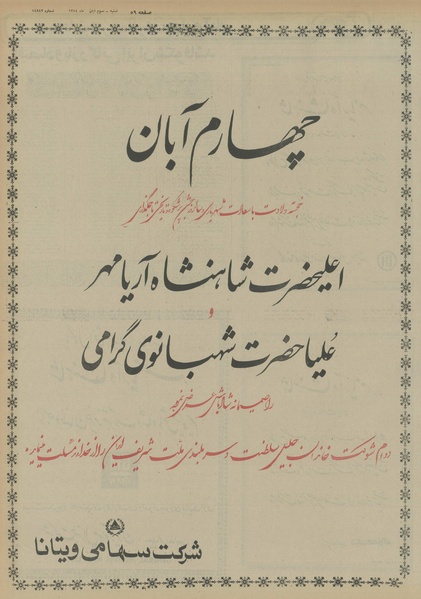 صفحه ۵۶
چهارم آبان
خجسته ولادت با سعادت شهریاری و چهاردهمین سالگرد تاریخی تاجگذاری
اعلیحضرت شاهنشاه آریامهر
و
علیاحضرت شهبانوی گرامی
را صمیمانه شادباش عرض نموده
دوام شوکت خاندان جلیل سلطنت و سربلندی ملت شریف ایران را از خداوند مسئلت مینماید
شرکت سهامی ویتانا